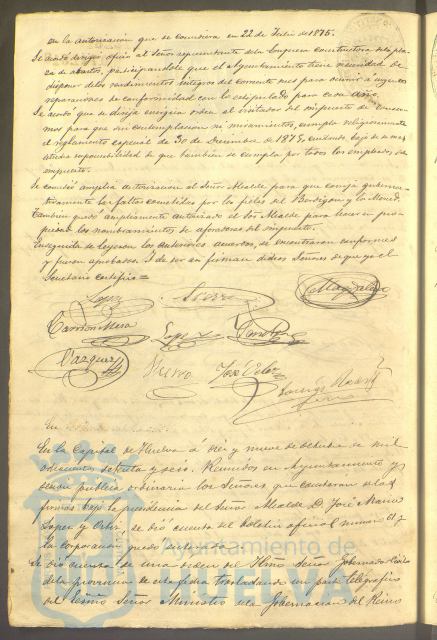 en la autorización que se concediera en 22 de Julio de 1875.
Se acordó dirigir oficio al Señor representante de la Empresa constructora de la pla-
za de abastos, participándole que el Ayuntamiento tiene necesidad de
disponer de los rendimientos íntegros del corriente mes para ocurrir á urgentes
reparaciones de conformidad con lo estipulado para cada año.
Se acordó que se dirija enérgica orden al visitador del impuesto de consu-
mos para que sin contemplacion ni miramientos, cumpla religiosamente
el reglamento especial de 30 de Diciembre de 1875, cuidando bajo su mas
estrecha responsabilidad de que tambien se cumpla por todos los empleados del
impuesto.
Se concedió amplia autorizacion al Señor Alcalde para que corrija guberna-
tivamente las faltas cometidas por los fieles del
Tambien quedó ampliamente autorizado el Sor Alcalde para hacer en pro-
piedad los nombramientos de aforadores del impuesto.
Enseguida se leyeron los anteriores acuerdos, se encontraron conformes
y fueron aprobados. Y de ser así firman dichos Señores de que yo el
Secretario certifico=
Lopez
Carrion Mesa Lopez
Vazquez José Velez
En
En la Capital de Huelva á diez y nueve de Octubre de mil
ochocientos setenta y seis. Reunidos en Ayuntamiento y
sesion pública ordinaria los Señores que
firman bajo la presidencia del Señor Alcalde D. José Maria
Lopez y Ortiz se dio cuenta del boletin oficial numero 87 y
la corporacion quedó enterada.
Se dió cuenta de una orden del Ilmo Señor Gobernador Civil
de la provincia de esta fecha trasladando un parte telegráfico
del Exmo Señor Ministro de la Gobernacion del Reino
Ayuntamiento de
HUELVA